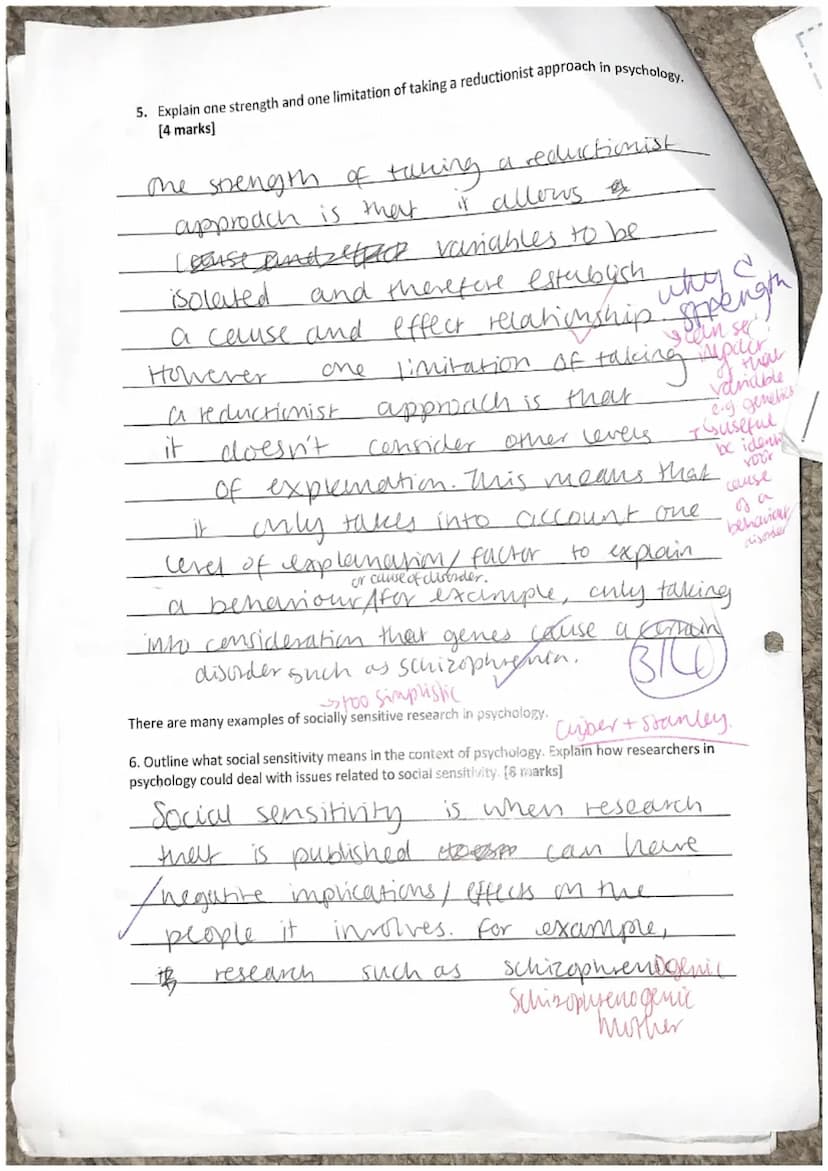 5. Explain one strength and one limitation of taking a reductionist approach in psychology.
[4 marks]
One strength of taking a reductionist
approach is that it allows
variables to be
isolated and therefore establish
a cause and effect relationship.
why strength
→ can see
impact
of that
variable
e.g genetics
useful
be identify
root
cause
of a
behaviour
disorder
However one limitation of taking
a reductionist approach is that
it doesn't consider other levels
of explanation. This means that
it only takes into account one
level of explanation/ factor to explain
or cause of disorder.
a behaviour/for example, only taking
into consideration that genes cause a certain
disorder such as schizophrenia.
3/4
→ too simplistic
There are many examples of socially sensitive research in psychology.
Ceiber + Stanley.
6. Outline what social sensitivity means in the context of psychology. Explain how researchers in
psychology could deal with issues related to social sensitivity. [8 marks]
Social sensitivity is when research
that is published can have
negative implications/ effects on the
people it involves. For example,
research such as schizophrenogenic
Schizophrenogenic
Mother